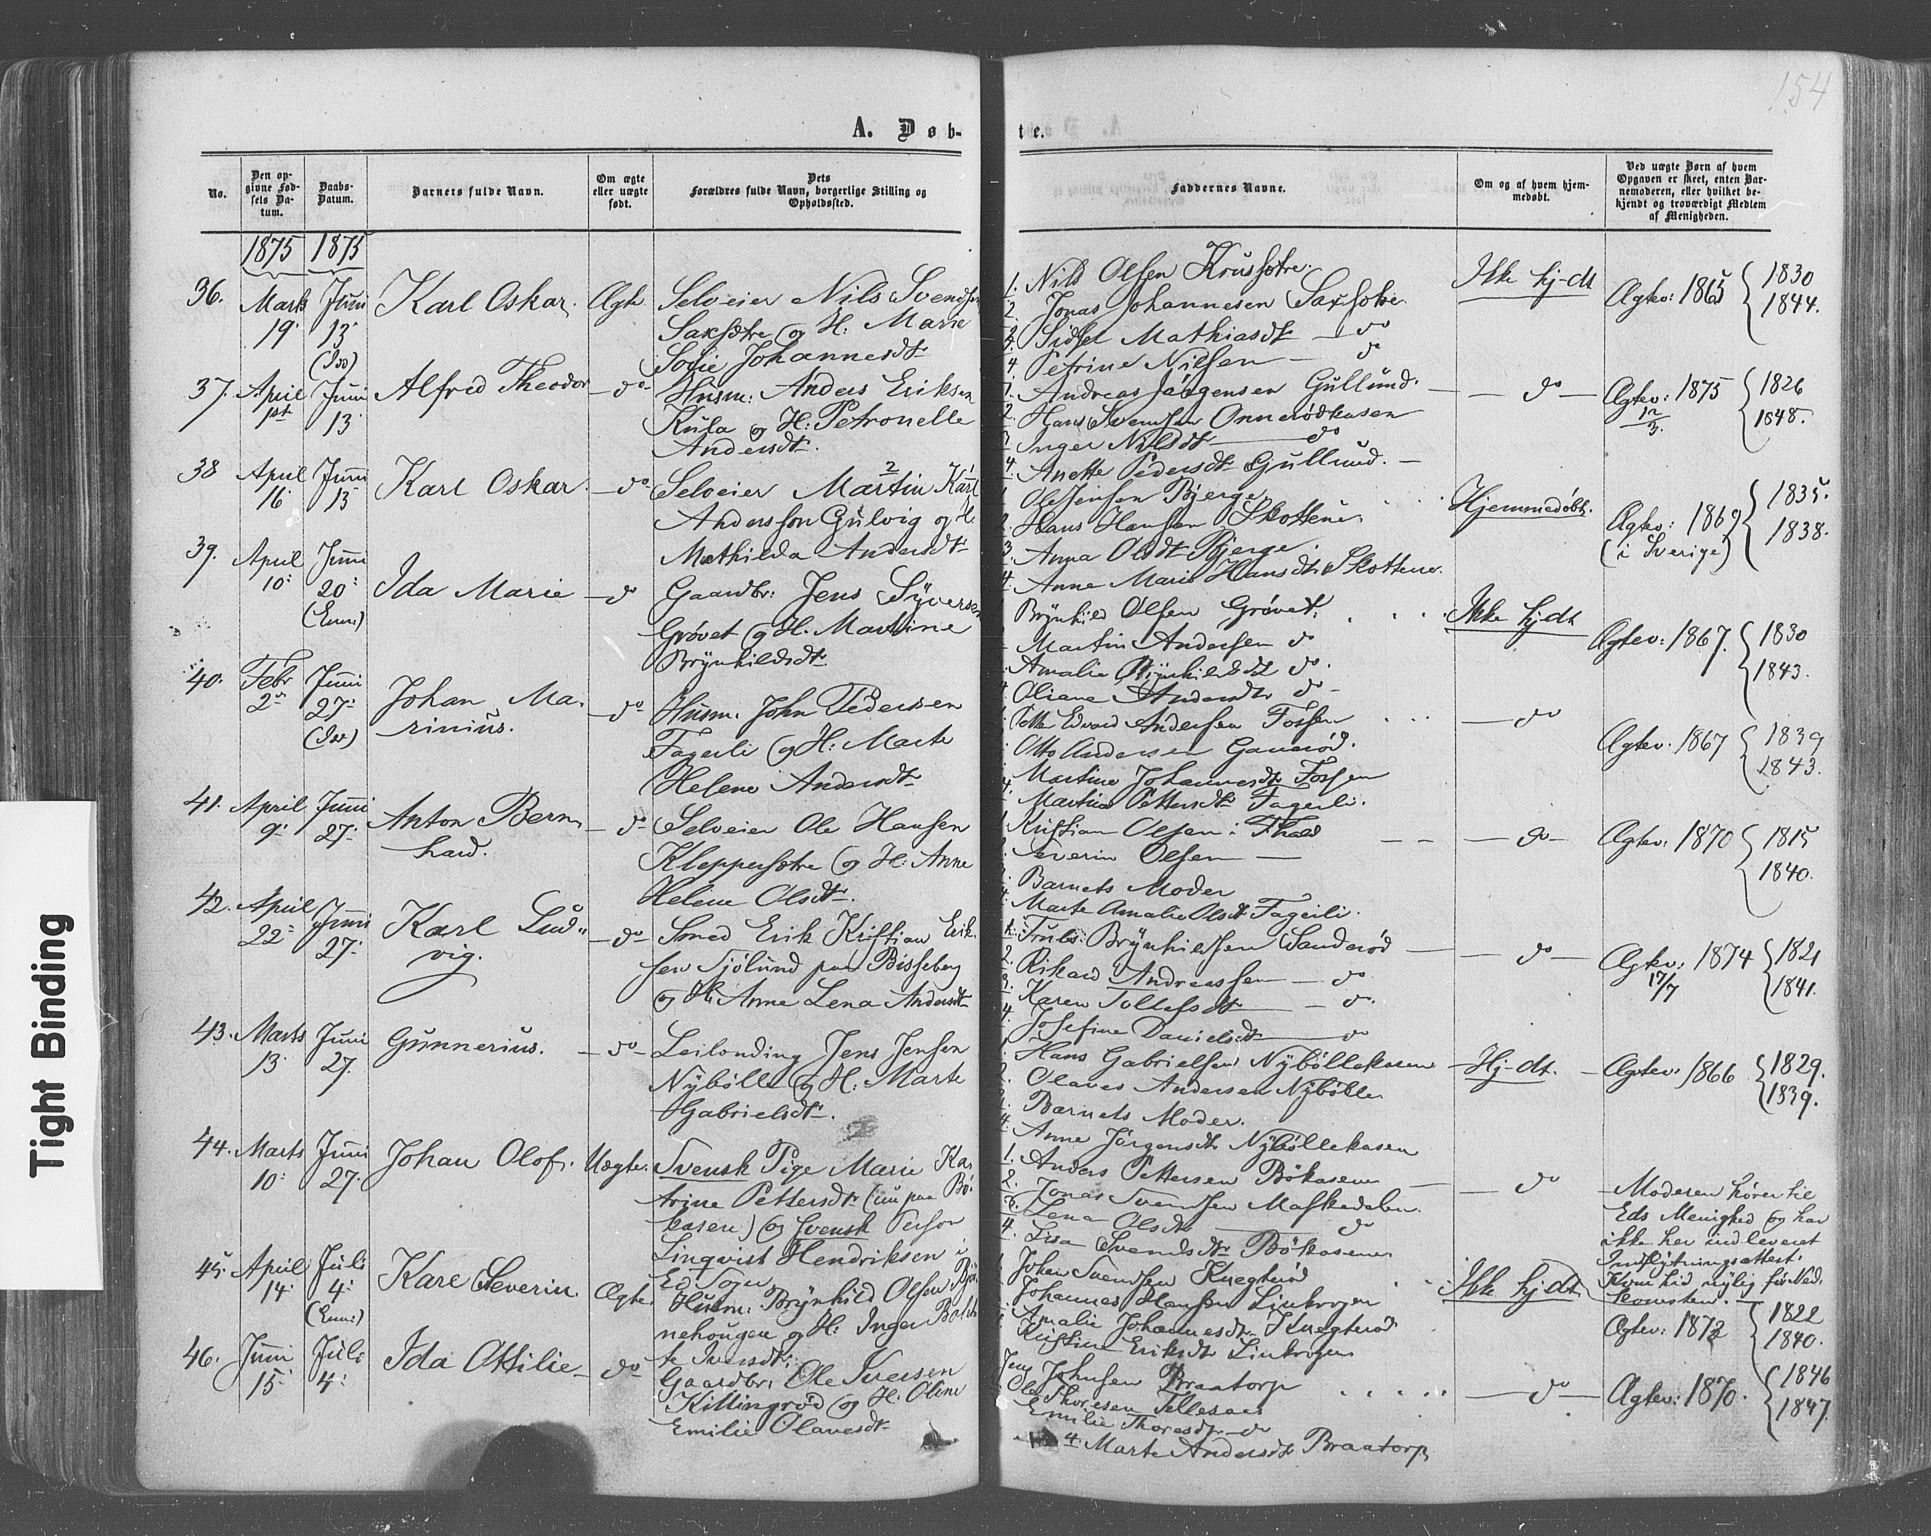 154
A. Døb-
te.
No.
Den opgivne Fødsels Datum.
Daabs-Datum.
Barnets fulde Navn.
Om ægte eller uægte født.
Dets Forældres fulde Navn, borgerlige Stilling og Opholdssted.
Faddernes Navne.
Om og af hvem hjemmedøbt.
Ved uægte Børn af hvem Opgaven er skeet, enten Barnemoderen, eller hvilket bekjendt og troværdigt Medlem af Menigheden.
1875 1875
36. Marts 19. Juni 13. (Idd) Karl Oskar. Ægte
Selveier Nils Svendsen
Saxsætre og H: Marie
Sofie Johannesdtr
1. Nils Olsen Krussætre.
2. Jonas Johannesen Saxsætre
3. Sidsel Mathiasdtr — do
4. Petrine Nilsen — do
Ikke hj-dt
Ægtev: 1865 { 1830
1844.
37. April 1st Juni 13. Alfred Theodor — do
Husm: Anders Eriksen
Kula og H: Petronelle
Andersdtr.
1. Andreas Jørgensen Gullund.
2. Hans Svendsen Onnerødkasen
3. Inger Nilsdtr — do
4. Anette Pedersdtr Gullund. —
— do —
Ægtev: 1875 12/3. { 1826
1848.
38 April 16. Juni 13. Karl Oskar. — do
Selveier Martin Karl 2 1
Andersson Gulvig og H:
Mathilda Andersdtr
1. Ole Jensen Bjerge
2. Hans Hansen Skottene
3. Anna Olsdtr Bjerge.
4. Anne Marie Hansdtr Skottene.
Hjemmedøbt.
Ægtev: 1869 (i Sverige) { 1835.
1838.
39. April 10. Juni 20. (Enn:) Ida Marie — do
Gaardbr: Jens Syversen
Grøvet og H: Martine
Brynhildsdtr
1. Brynhild Olsen Grøvet.
Martin Andersen do
Amalie Brynhildsdtr do.
Oliane Andersdtr do —
Ikke hj-dt
Ægtev: 1867. { 1830
1843.
40. Febr 2. Juni 27. (Idd) Johan Ma-
rinius. — do
Husm. John Pedersen
Fagerli og H: Marte
Helene Andersdtr
Edvard Andersen Fossen
Otto Andersen Gamerød.
Martine Johannesdtr Fossen
4. Martine Pettersdtr Fagerli.
— do
Ægtev: 1867 { 1839
1843.
41. April 9. Juni 27. Anton Bern-
hard. — do
Selveier Ole Hansen
Kleppersætre og H: Anne
Helene Olsdtr.
1. Kristian Olsen i Thad
Severin Olsen —
Barnets Moder
Marte Amalie Olsdtr Fagerli.
— do —
Ægtev: 1870 { 1815
1840.
42. April 22. Juni 27. Karl Lud-
vig. — do —
Smed Erik Kristian Erik-
sen Sjölund paa Bisseberg
og H: Anne Lena Andersdtr
1. Truls Brynhildsen Sanderød
2. Rikard Andreassen — do
3. Karen Tollefsdtr — do.
4. Josefine Danielsdtr — do
— do —
Ægtev: 1874 17/7 { 1821
1841.
43. Marts 13. Juni 27. Gunnerius. — do —
Leilending Jens Jensen
Nybölle og H: Marte
Gabrielsdtr.
1. Hans Gabrielsen Nybøllekasen
2. Olaves Andersen Nybølle
3. Barnets Moder.
4. Anne Jörgensdtr Nybøllekasen
Hj-dt.
Ægtev: 1866 { 1829.
1839.
44. Marts 10. Juni 27. Johan Olof. Uægte.
Svensk Pige Marie Ka-
trine Pettersdtr (nu paa Bö-
kasene) og svensk Person
Linqvist Hendriksen i
Ed Sogn
1. Anders Pettersen Bökasene
2. Jonas Svendsen Maskedalen.
3. Lena Olsdtr — do
4. Lisa Svendsdtr Bökasene
— do
Moderen hører til
Eds Menighed og har
ikke her indleveret
Indflytningsattest.
Kom hid nylig før Ned-
komsten. —
45. April 14. Juli 4. (Enn:) Karl Severin. Ægte.
Husm: Brynhild Olsen Bjør-
nehougen og H: Inger Bol-
te Iversdtr:
Johan Svendsen Knegterød
Johannes Hansen Linkrogen
Amalie Johannesdtr Knegterød
Kristine Eriksdtr Linkrogen
Ikke hj-dt
Ægtev: 1872 { 1822
1840.
46. Juni 15. Juli 4. Ida Ottilie — do —
Gaardbr: Ole Iversen
Killingrød og H: Oline
Emilie Olavesdtr
Jens Johnsen Braatorp
Ole Thoresen
Emilie Thoresdtr — do
4. Marte Andersdtr Braatorp
— do —
Ægtev: 1870. { 1846
1847.
Tight Binding